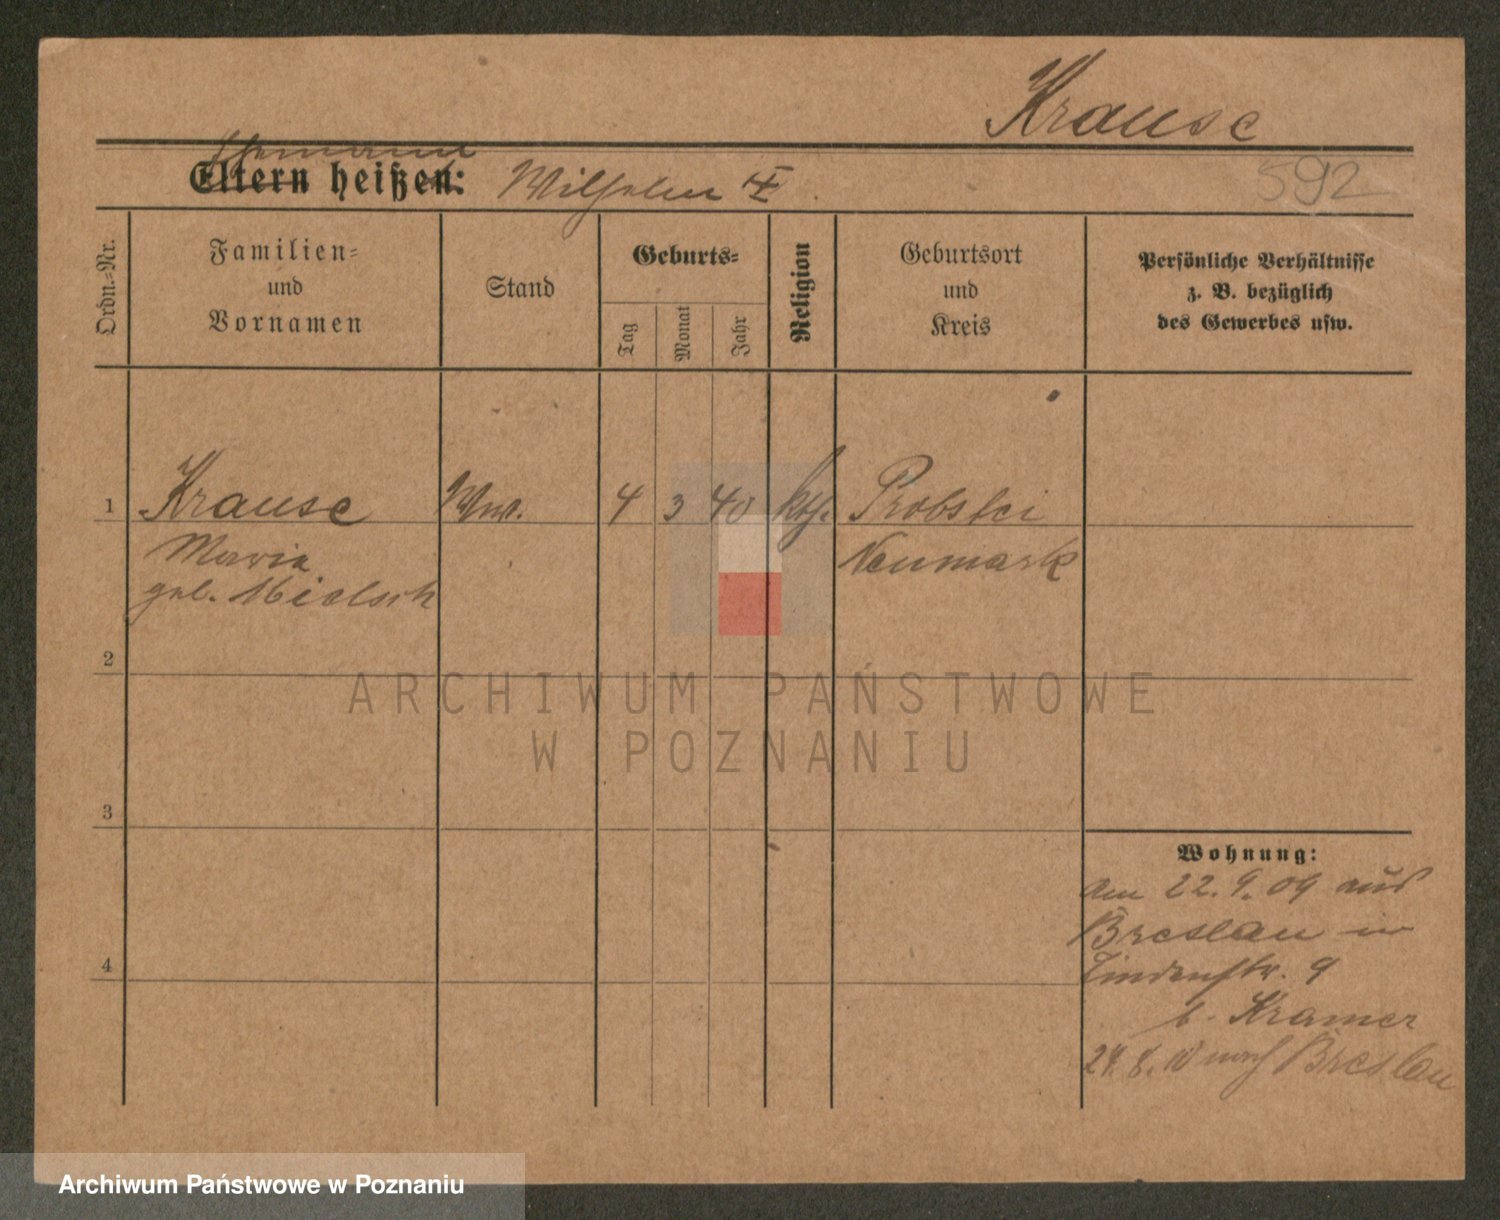 Krause
Ehemann
Eltern heißen: Wilhelm
592
Ordn.-Nr.
Familien-
und
Vornamen
Stand
Geburts-
Tag
Monat
Jahr
Religion
Geburtsort
und
Kreis
Persönliche Verhältnisse
z. B. bezüglich
des Gewerbes usw.
1 Krause Ww. 4 3 40 kth. Probstei
Maria Neumark
geb. Mielsch
2
ARCHIWUM PAŃSTWOWE
W POZNANIU
3
Wohnung:
am 22.9.09 aus
Breslau in
4
Lindenstr. 9
b. Kramer
24.8.10 nach Breslau
Archiwum Państwowe w Poznaniu